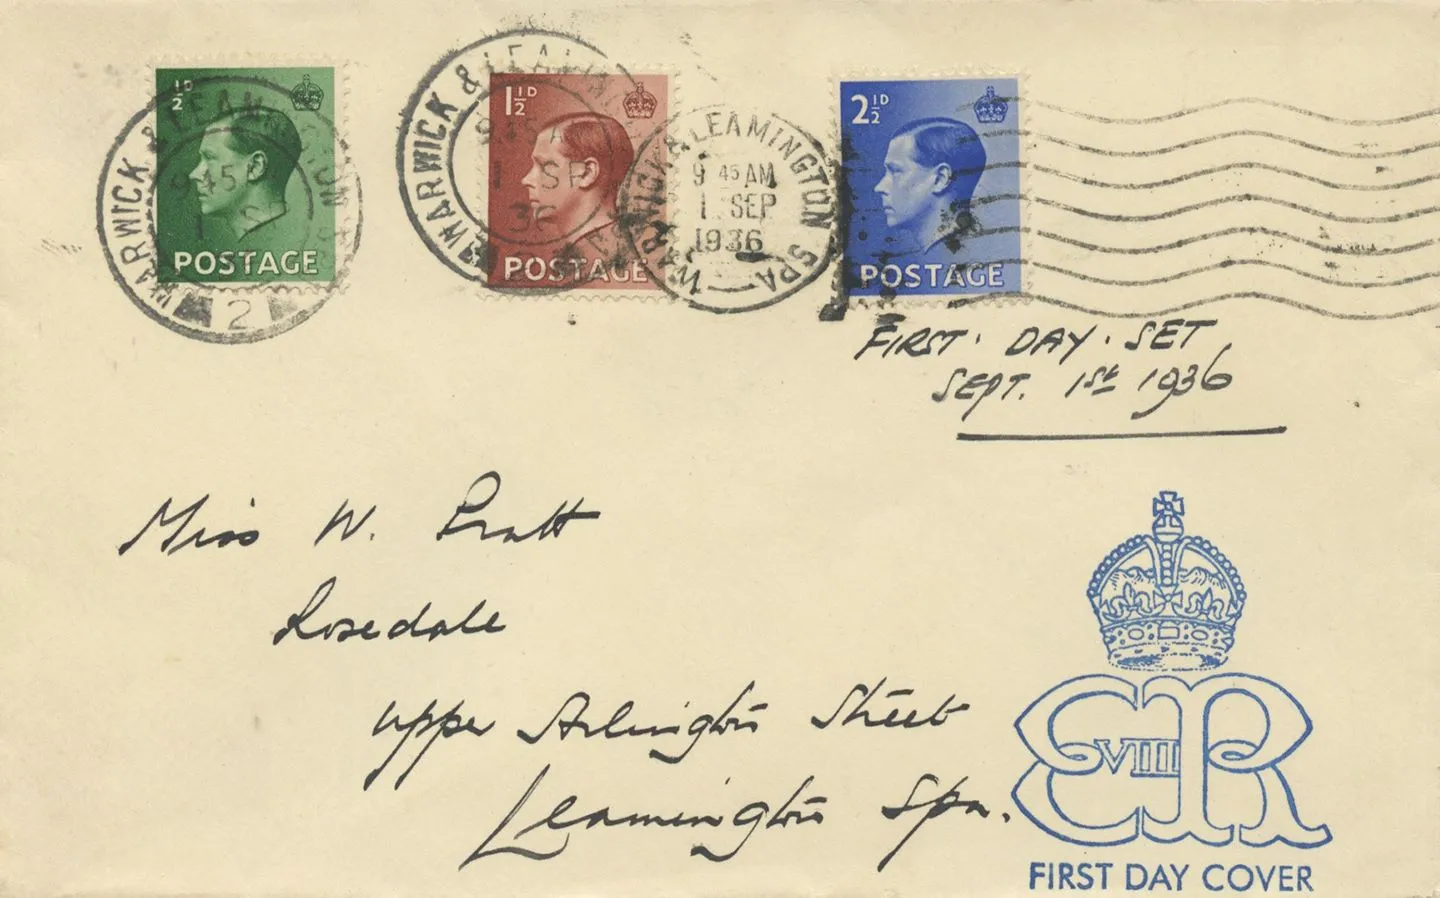 ½D
POSTAGE
WARWICK & LEAMINGTON
9 45
2
1½D
POSTAGE
WARWICK & LEAMIN
9 45 A
1 SP
36
WARWICK & LEAMINGTON SPA
9 45 AM
1 SEP
1936
2½D
POSTAGE
FIRST · DAY · SET
SEPT. 1st 1936
Miss W. Pratt
Rosedale
upper Arlington Street
Leamington Spa.
EVIIIR
FIRST DAY COVER